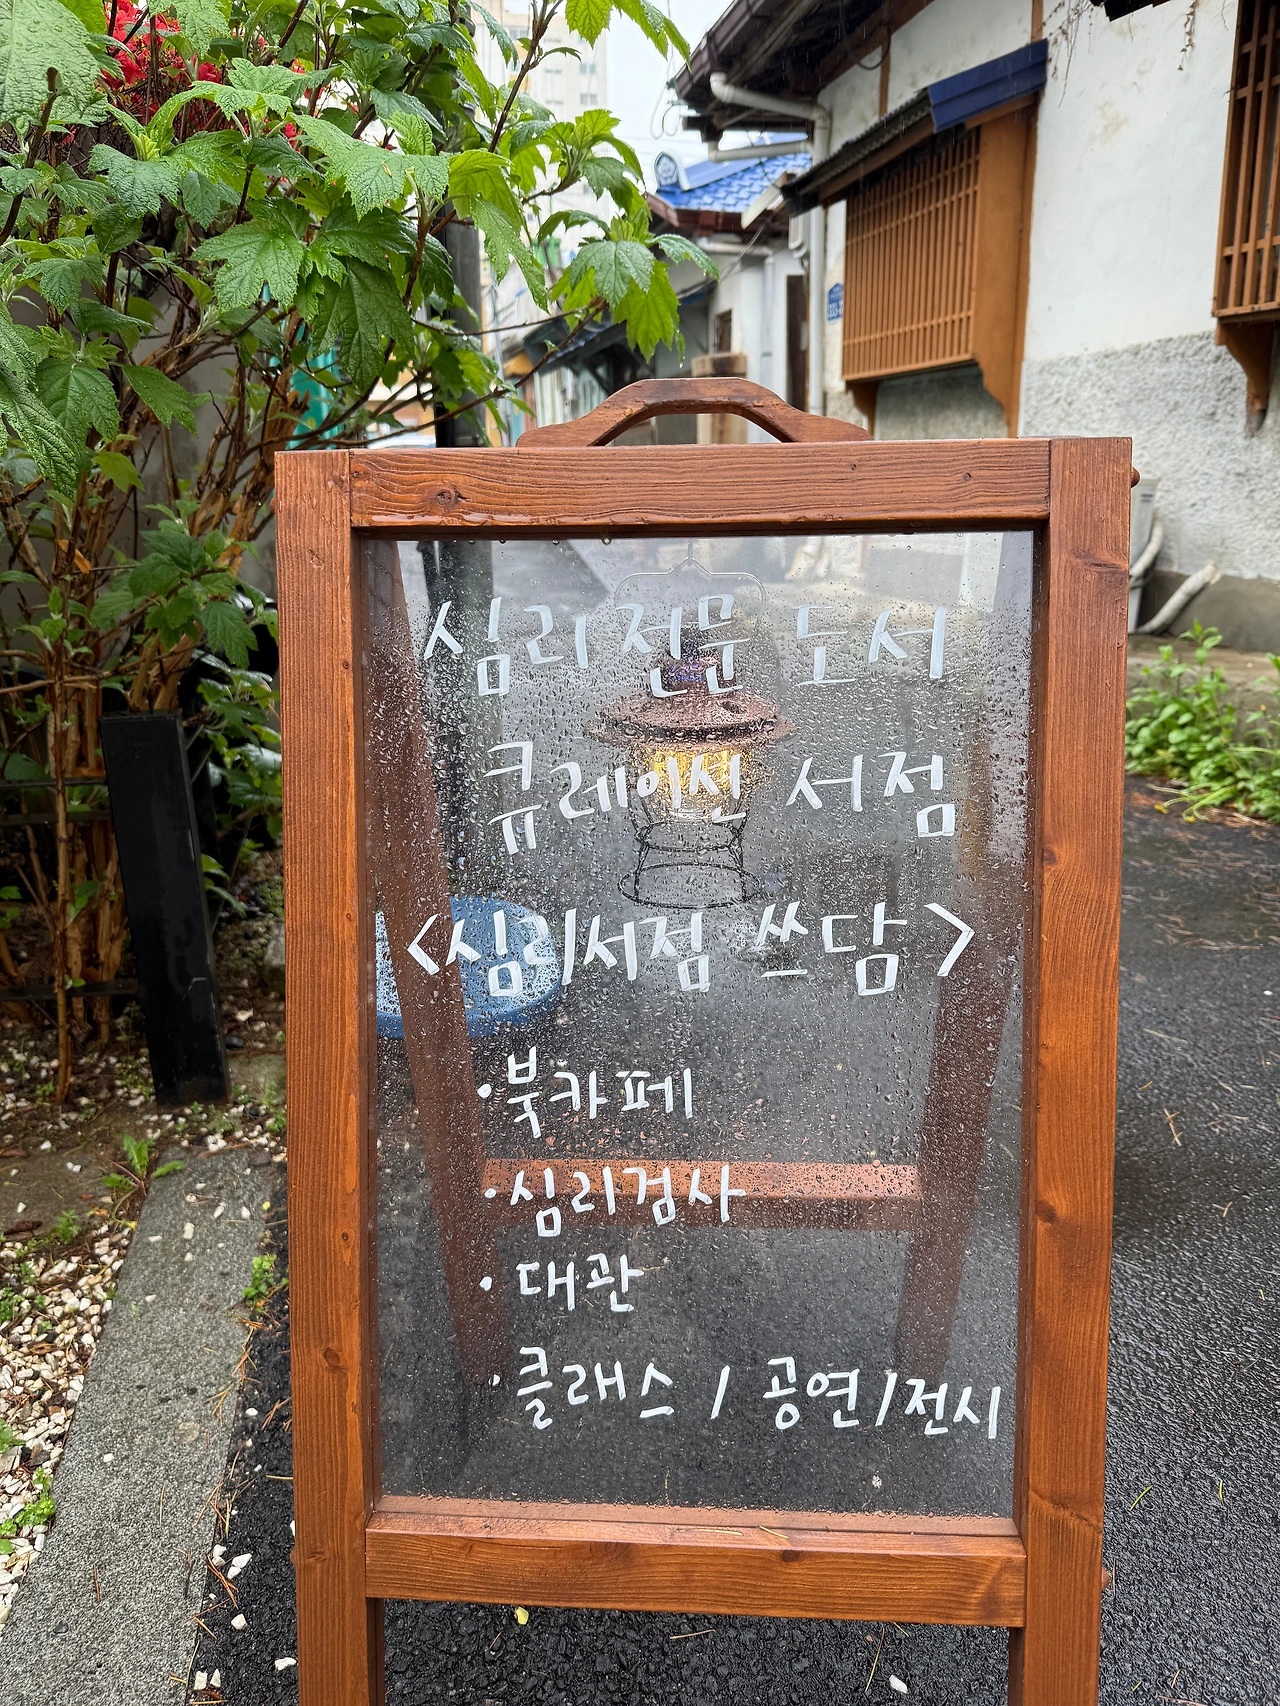 심리 전문 도서
큐레이션 서점
<심리서점 쓰담>
·북카페
·심리검사
·대관
·클래스 / 공연/전시